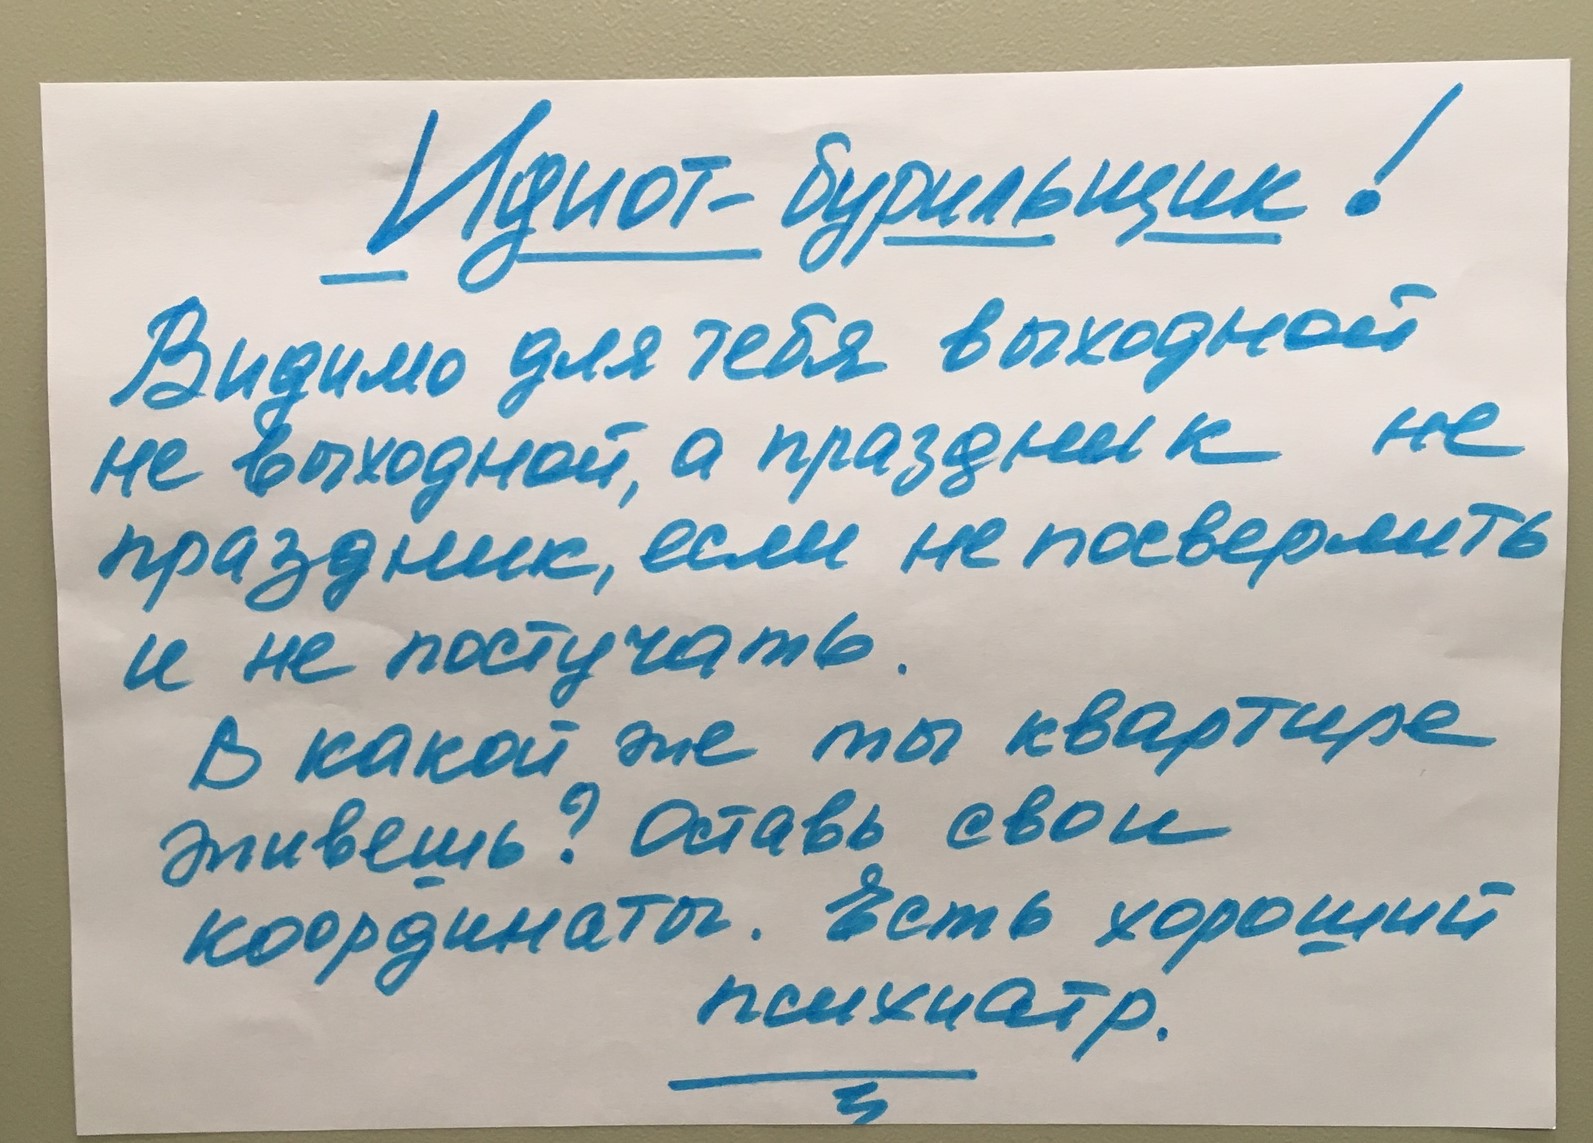 Идиот-бурильщик!
Видимо для тебя выходной
не выходной, а праздник не
праздник, если не посверлить
и не постучать.
В какой же ты квартире
живешь? Оставь свои
координаты. Есть хороший
психиатр.